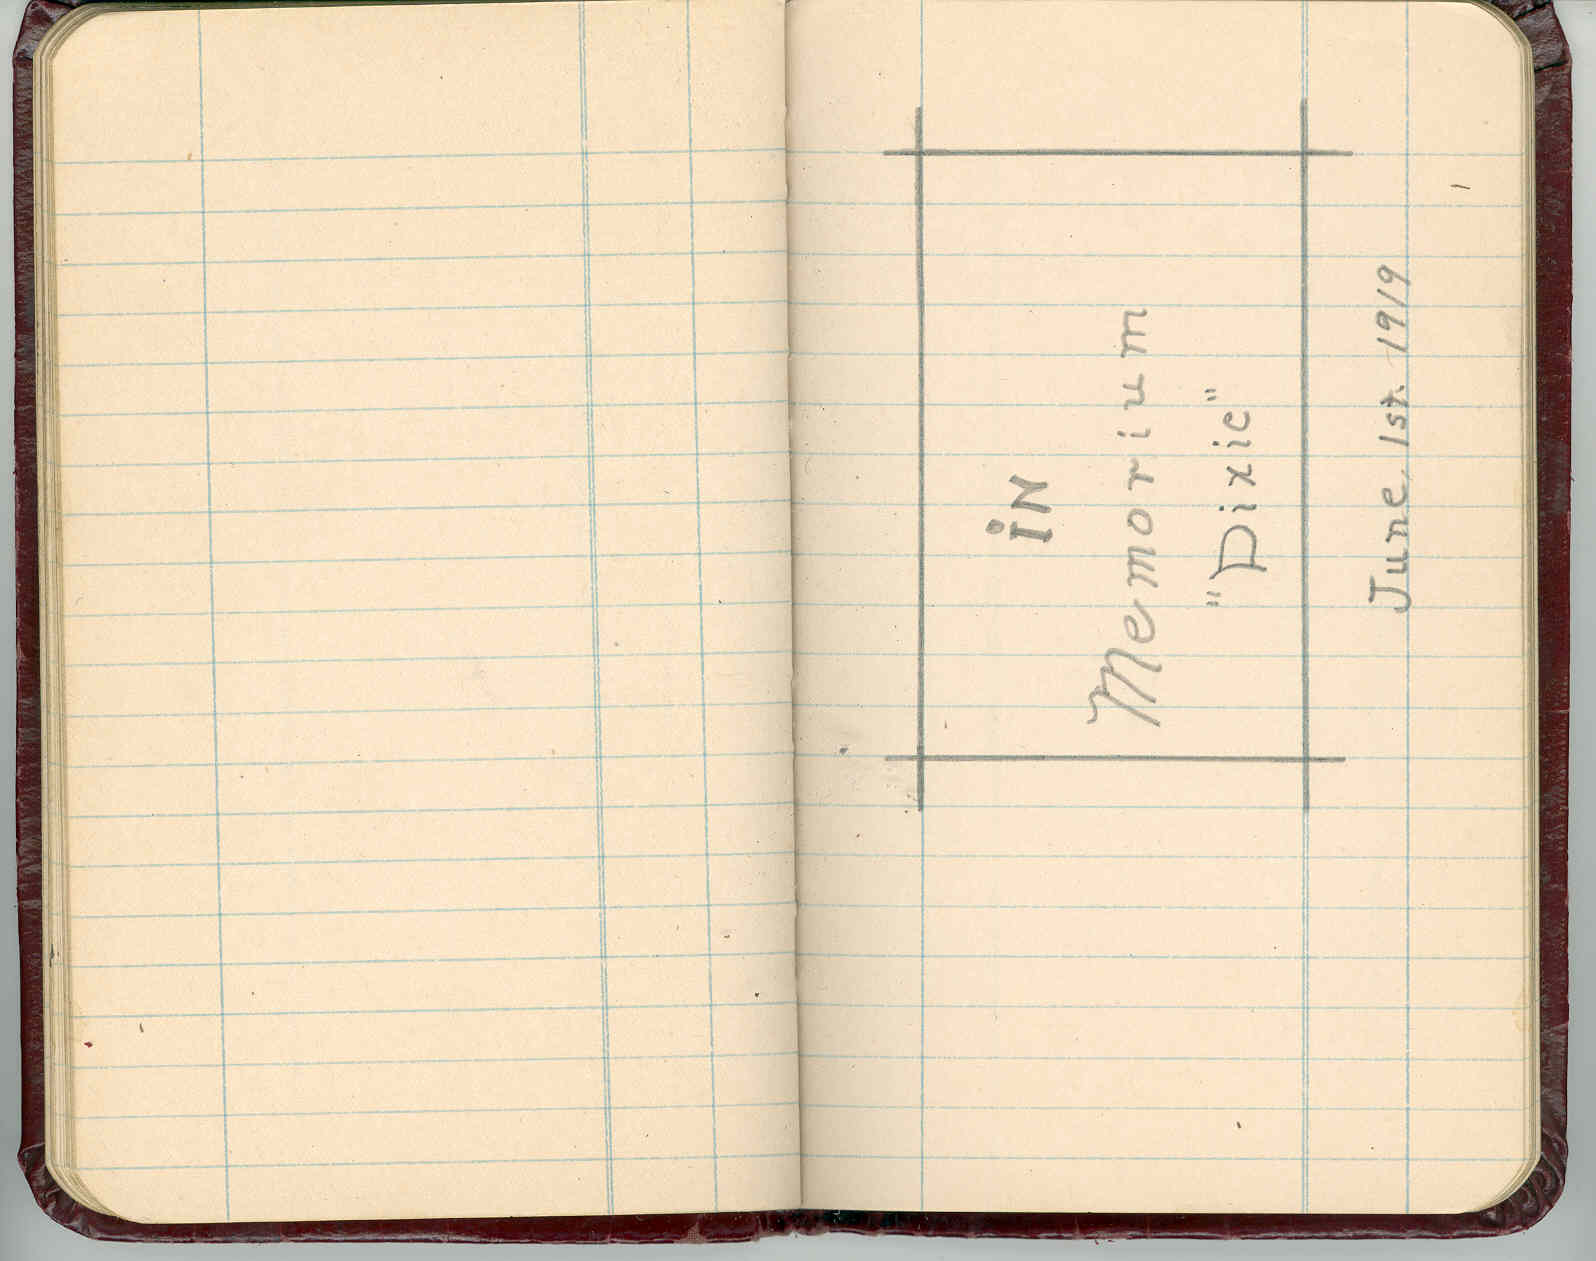 iN
Memorium
"Dixie"
June 1st. 1919